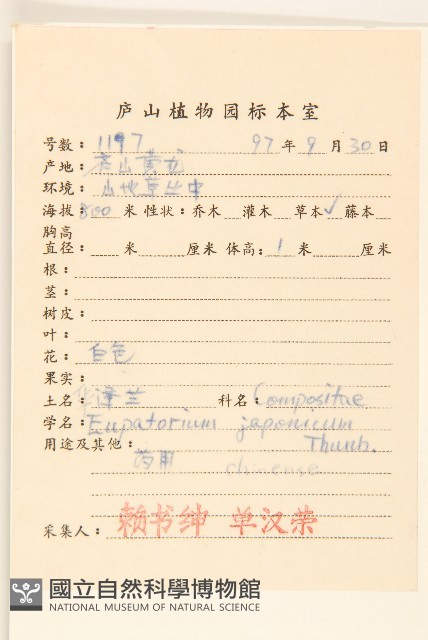 庐山植物园标本室
号数：1197 97年9月30日
产地：庐山黄龙
环境：山地草丛中
海拔：800米 性状：乔木 灌木 草本✓ 藤本
胸高
直径： 米 厘米 体高：1米 厘米
根：
茎：
树皮：
叶：
花：白色
果实：
土名：华泽兰 科名：Compositae
学名：Eupatorium japonicum
Thunb.
用途及其他：
药用 chinense
采集人：赖书绅 单汉荣
國立自然科學博物館
NATIONAL MUSEUM OF NATURAL SCIENCE